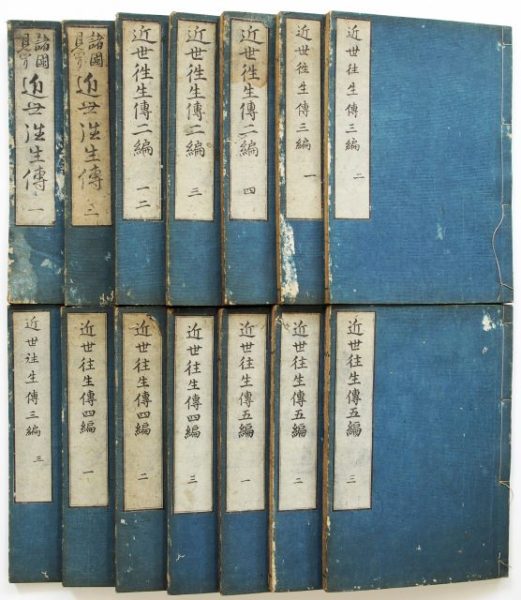 諸國
見聞
近世往生傳 一
諸國
見聞
近世往生傳
近世往生傳二編 一二
近世往生傳二編 三
近世往生傳二編 四
近世往生傳三編 一
近世往生傳三編 二
近世往生傳三編 三
近世往生傳四編 一
近世往生傳四編 二
近世往生傳四編 三
近世往生傳五編 一
近世往生傳五編 二
近世往生傳五編 三